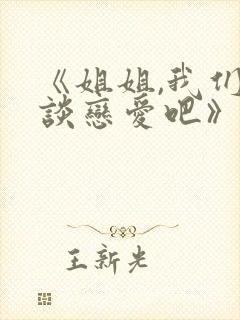 《姐姐,我们
談戀愛吧》
王新光